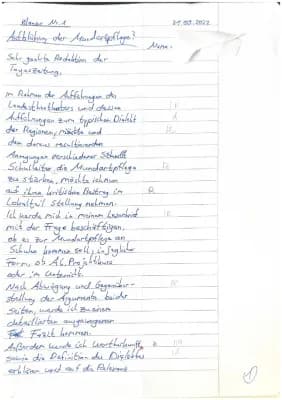 Klausur Nr. 1 21.03.2022
Aufblühung der Mundartpflege? Name:
Sehr geehrte Redaktion der
Tageszeitung,
im Rahmen der Aufführungen des
Landestheaters und dessen
Aufführungen zum typischen Dialekt
der Regionen, möchte und
den daraus resultierenden
Anregungen verschiedener
Schulleiter die Mundartpflege
zu stärken, möchte ich nun
auf ihren kritischen Beitrag im
Lokalteil Stellung nehmen.
Ich werde mich in meinem Leserbrief
mit der Frage beschäftigen,
ob es zur Mundartpflege an
Schulen kommen soll, in jeglicher
Form, ob AG, Projektkurs
oder im Unterricht.
Nach Abwägung und Gegenüber-
stellung der Argumente beider
Seiten, werde ich zu einem
detaillierten ausgewogenen
Fazit kommen.
Außerdem werde ich
sowie die Definition des Dialektes
erklären und auf die Relevanz
1